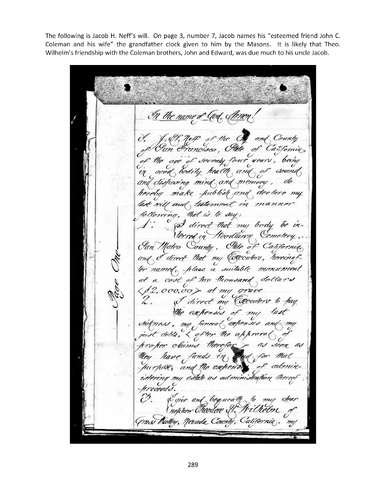 The following is Jacob H. Neff's will. On page 3, number 7, Jacob names his "esteemed friend John C.
Coleman and his wife" the grandfather clock given to him by the Masons. It is likely that Theo.
Wilhelm's friendship with the Coleman brothers, John and Edward, was due much to his uncle Jacob.
In the name of God, Amen!
I, J. H. Neff of the City and County
of San Francisco, State of California
of the age of seventy four years, being
in good bodily health and of sound
and disposing mind and memory, do
hereby make publish and declare my
last will and testament in manner
following, that is to say.
1. I direct that my body be in-
terred in Woodlawn Cemetery,
San Mateo County, State of California,
and I direct that my Executors, hereinaf-
ter named, place a suitable monument
at a cost of two thousand dollars
($2,000,00) at my grave
2. I direct my Executors to pay
the expenses of my last
sickness, my funeral expenses and my
just debts, after the approval of
proper claims therefor, as soon as
they have funds in for that
purpose, and the expenses of admin-
istering my estate as administration thereof
proceeds.
3. I give and bequeath to my dear
nephew Theodore Wilhelm of
Grass Valley, Nevada County, California, my
Page One
289